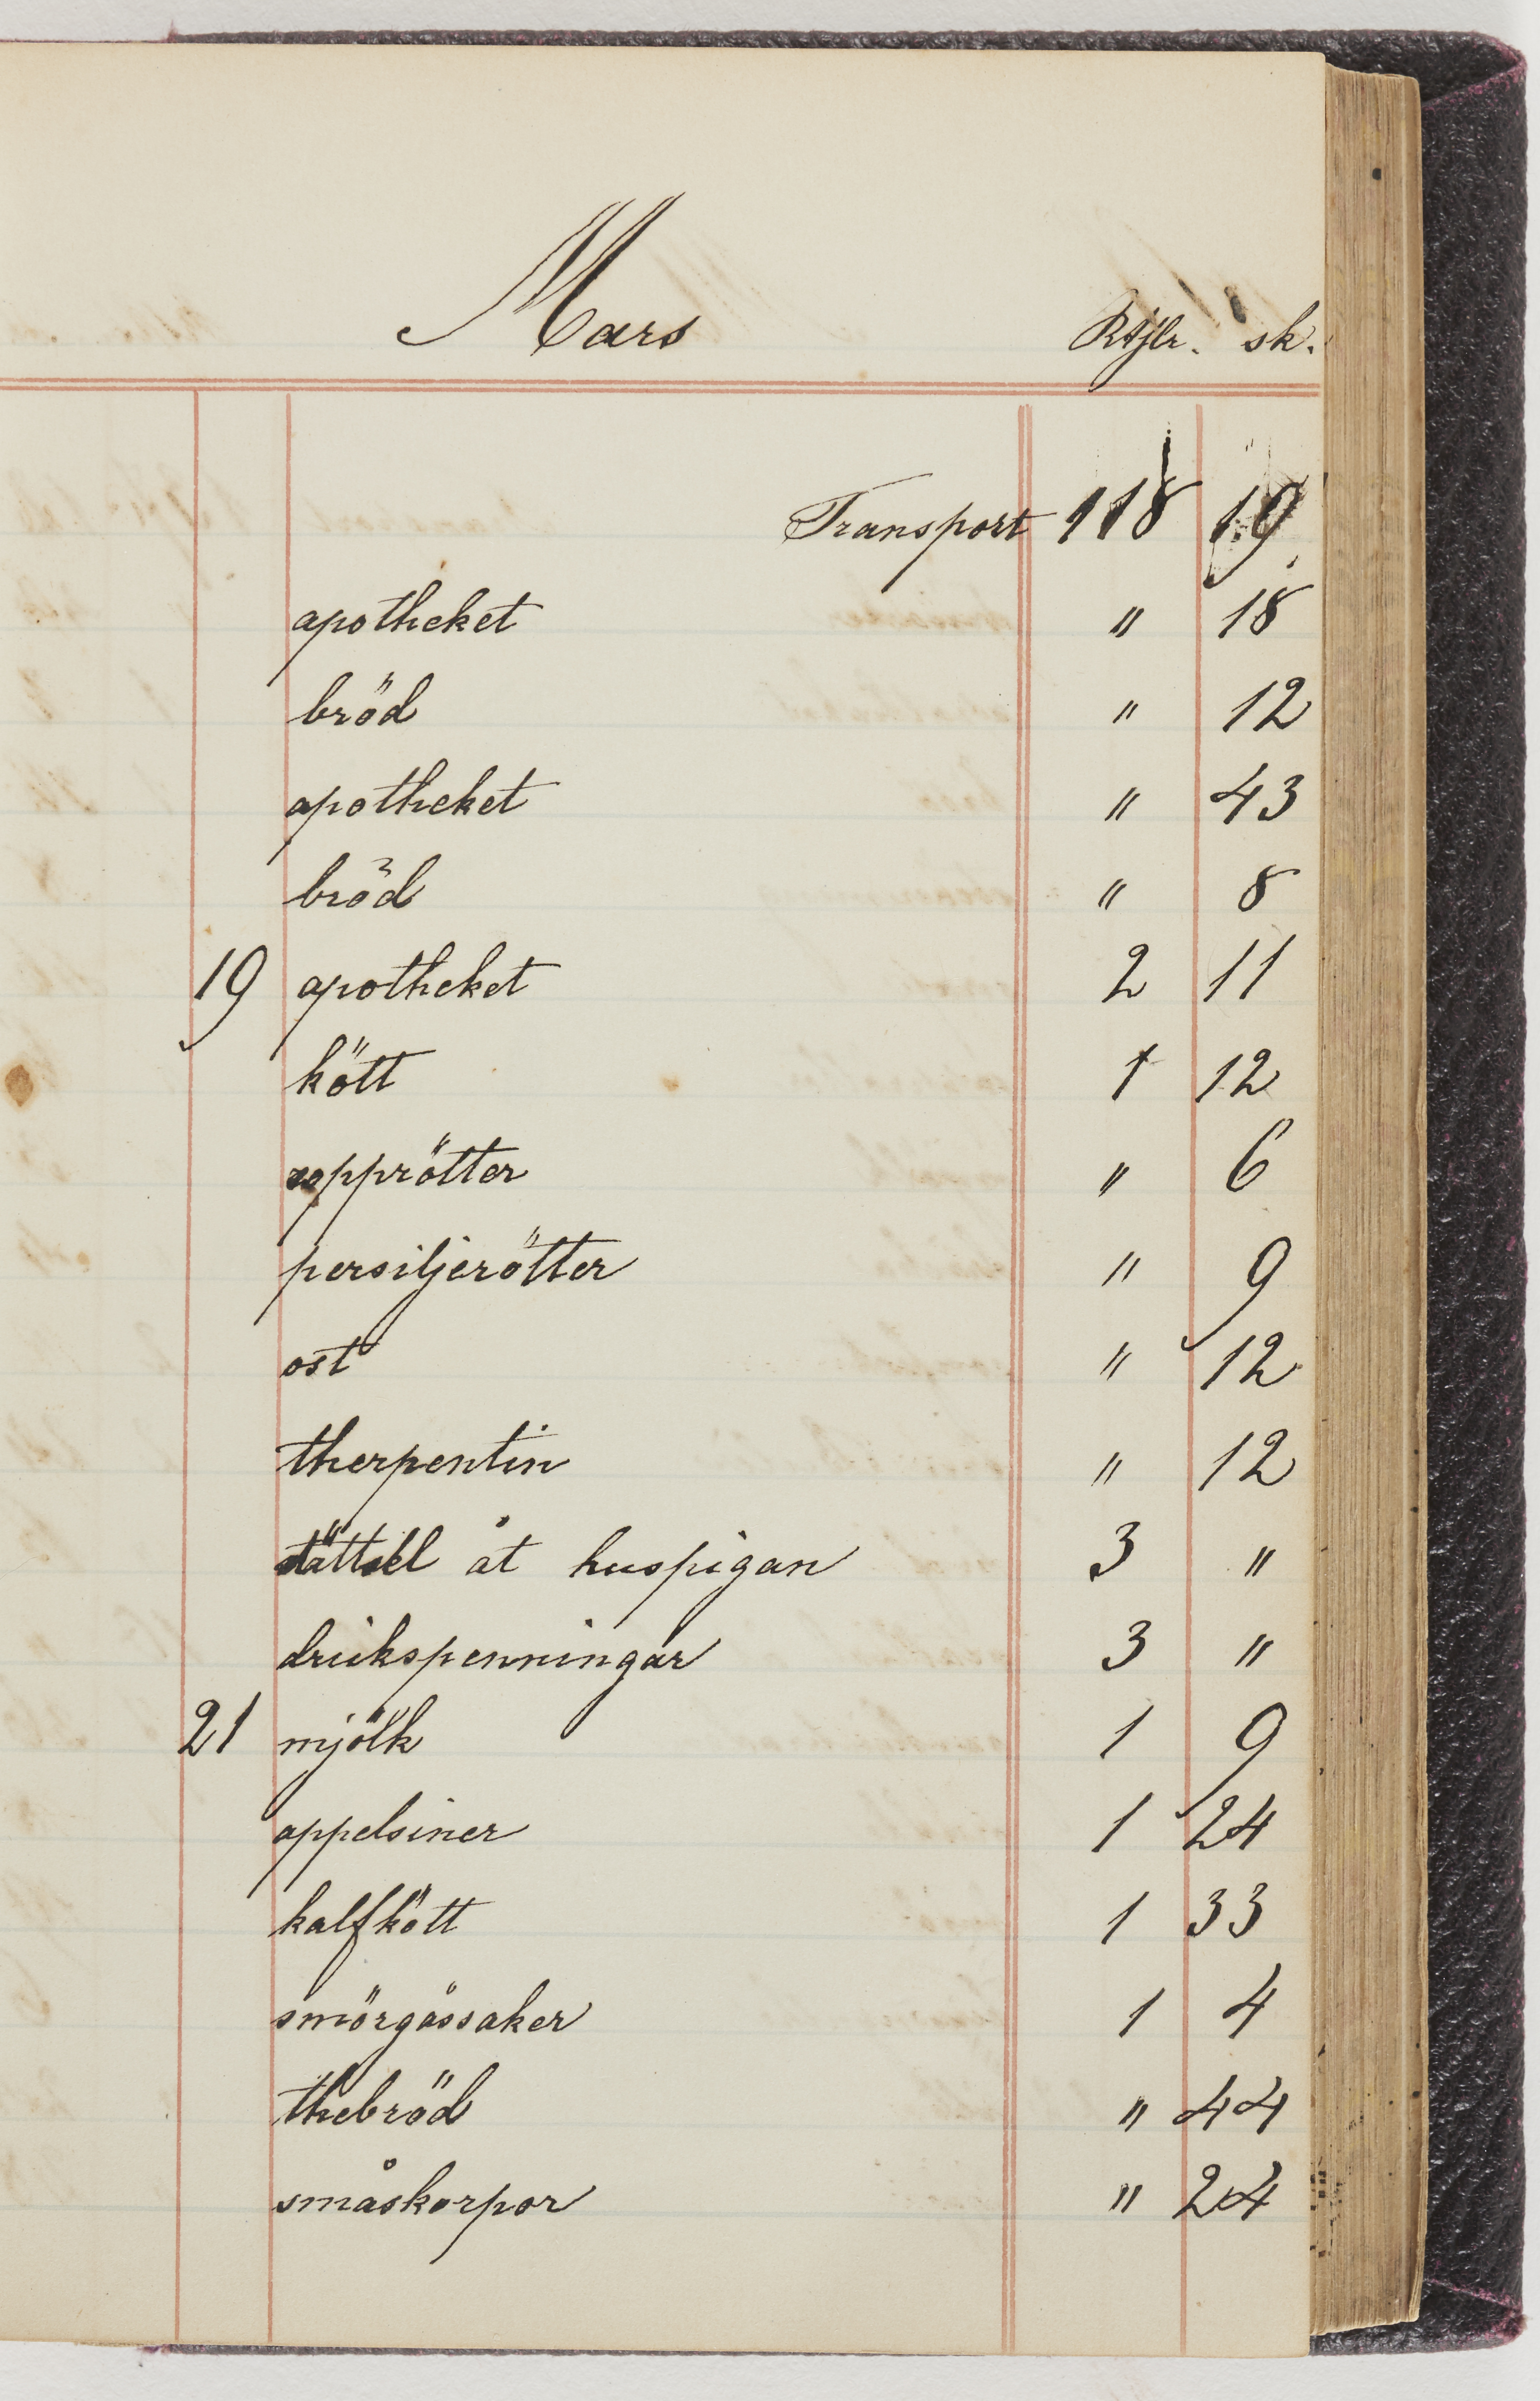 Mars Rdlr. sk.
Transport 118 19
apotheket " 18
bröd " 12
apotheket " 43
bröd " 8
19 apotheket 2 11
kött 1 12
sopprötter " 6
persiljerötter " 9
ost " 12
therpentin " 12
åt huspigan 3 "
drickspenningar 3 "
21 mjölk 1 9
appelsiner 1 24
kalfkött 1 33
smörgåssaker 1 4
thebröd " 44
småskorpor " 24